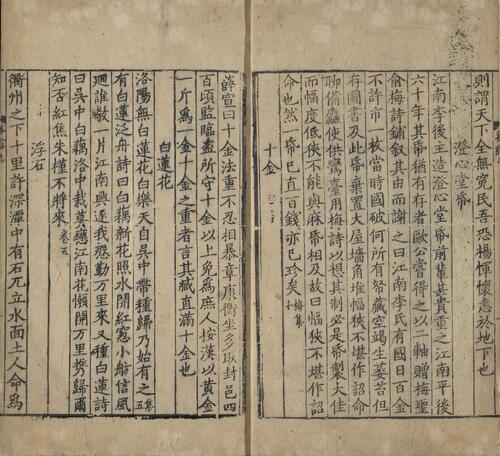 則謂天下全無寃民吾恐楊惲懷恚於地下也
澄心堂帋
江南李後主造澄心堂帋前輩甚貴重之江南平後
六十年其帋猶有存者歐公嘗得之以二軸贈梅聖
俞梅詩鋪叙其由而謝之曰江南李氏有國日百金
不許市一枚當時國破何所有帑藏空竭生莓苔但
存圖書及此帋棄置大屋墻角堆幅狹不堪作詔命
聊備麄使供鸞臺用梅詩以想其制必是帋製大佳
而幅度低狹不能與麻帋相及故曰幅狹不堪作詔
命也然一帋已直百錢亦已珍矣梅集十
十金
薛宣曰十金法重不忍相暴章康衡坐多取封邑四
百頃監臨盗所守十金以上免為庶人按漢以黄金
一斤為一金十金之重者言其臧直滿十金也
白蓮花
洛陽無白蓮花白樂天自吳中帶種歸乃始有之集五
有白蓮泛舟詩曰白藕新花照水開紅窓小舫信風
廻誰敎一片江南興逐我慇勤万里來又種白蓮詩
曰吳中白藕洛中栽莫戀江南花懶開万里携歸爾
知否紅蕉朱槿不將來 卷五
浮石
衢州之下十里許深潭中有石兀立水面土人命為